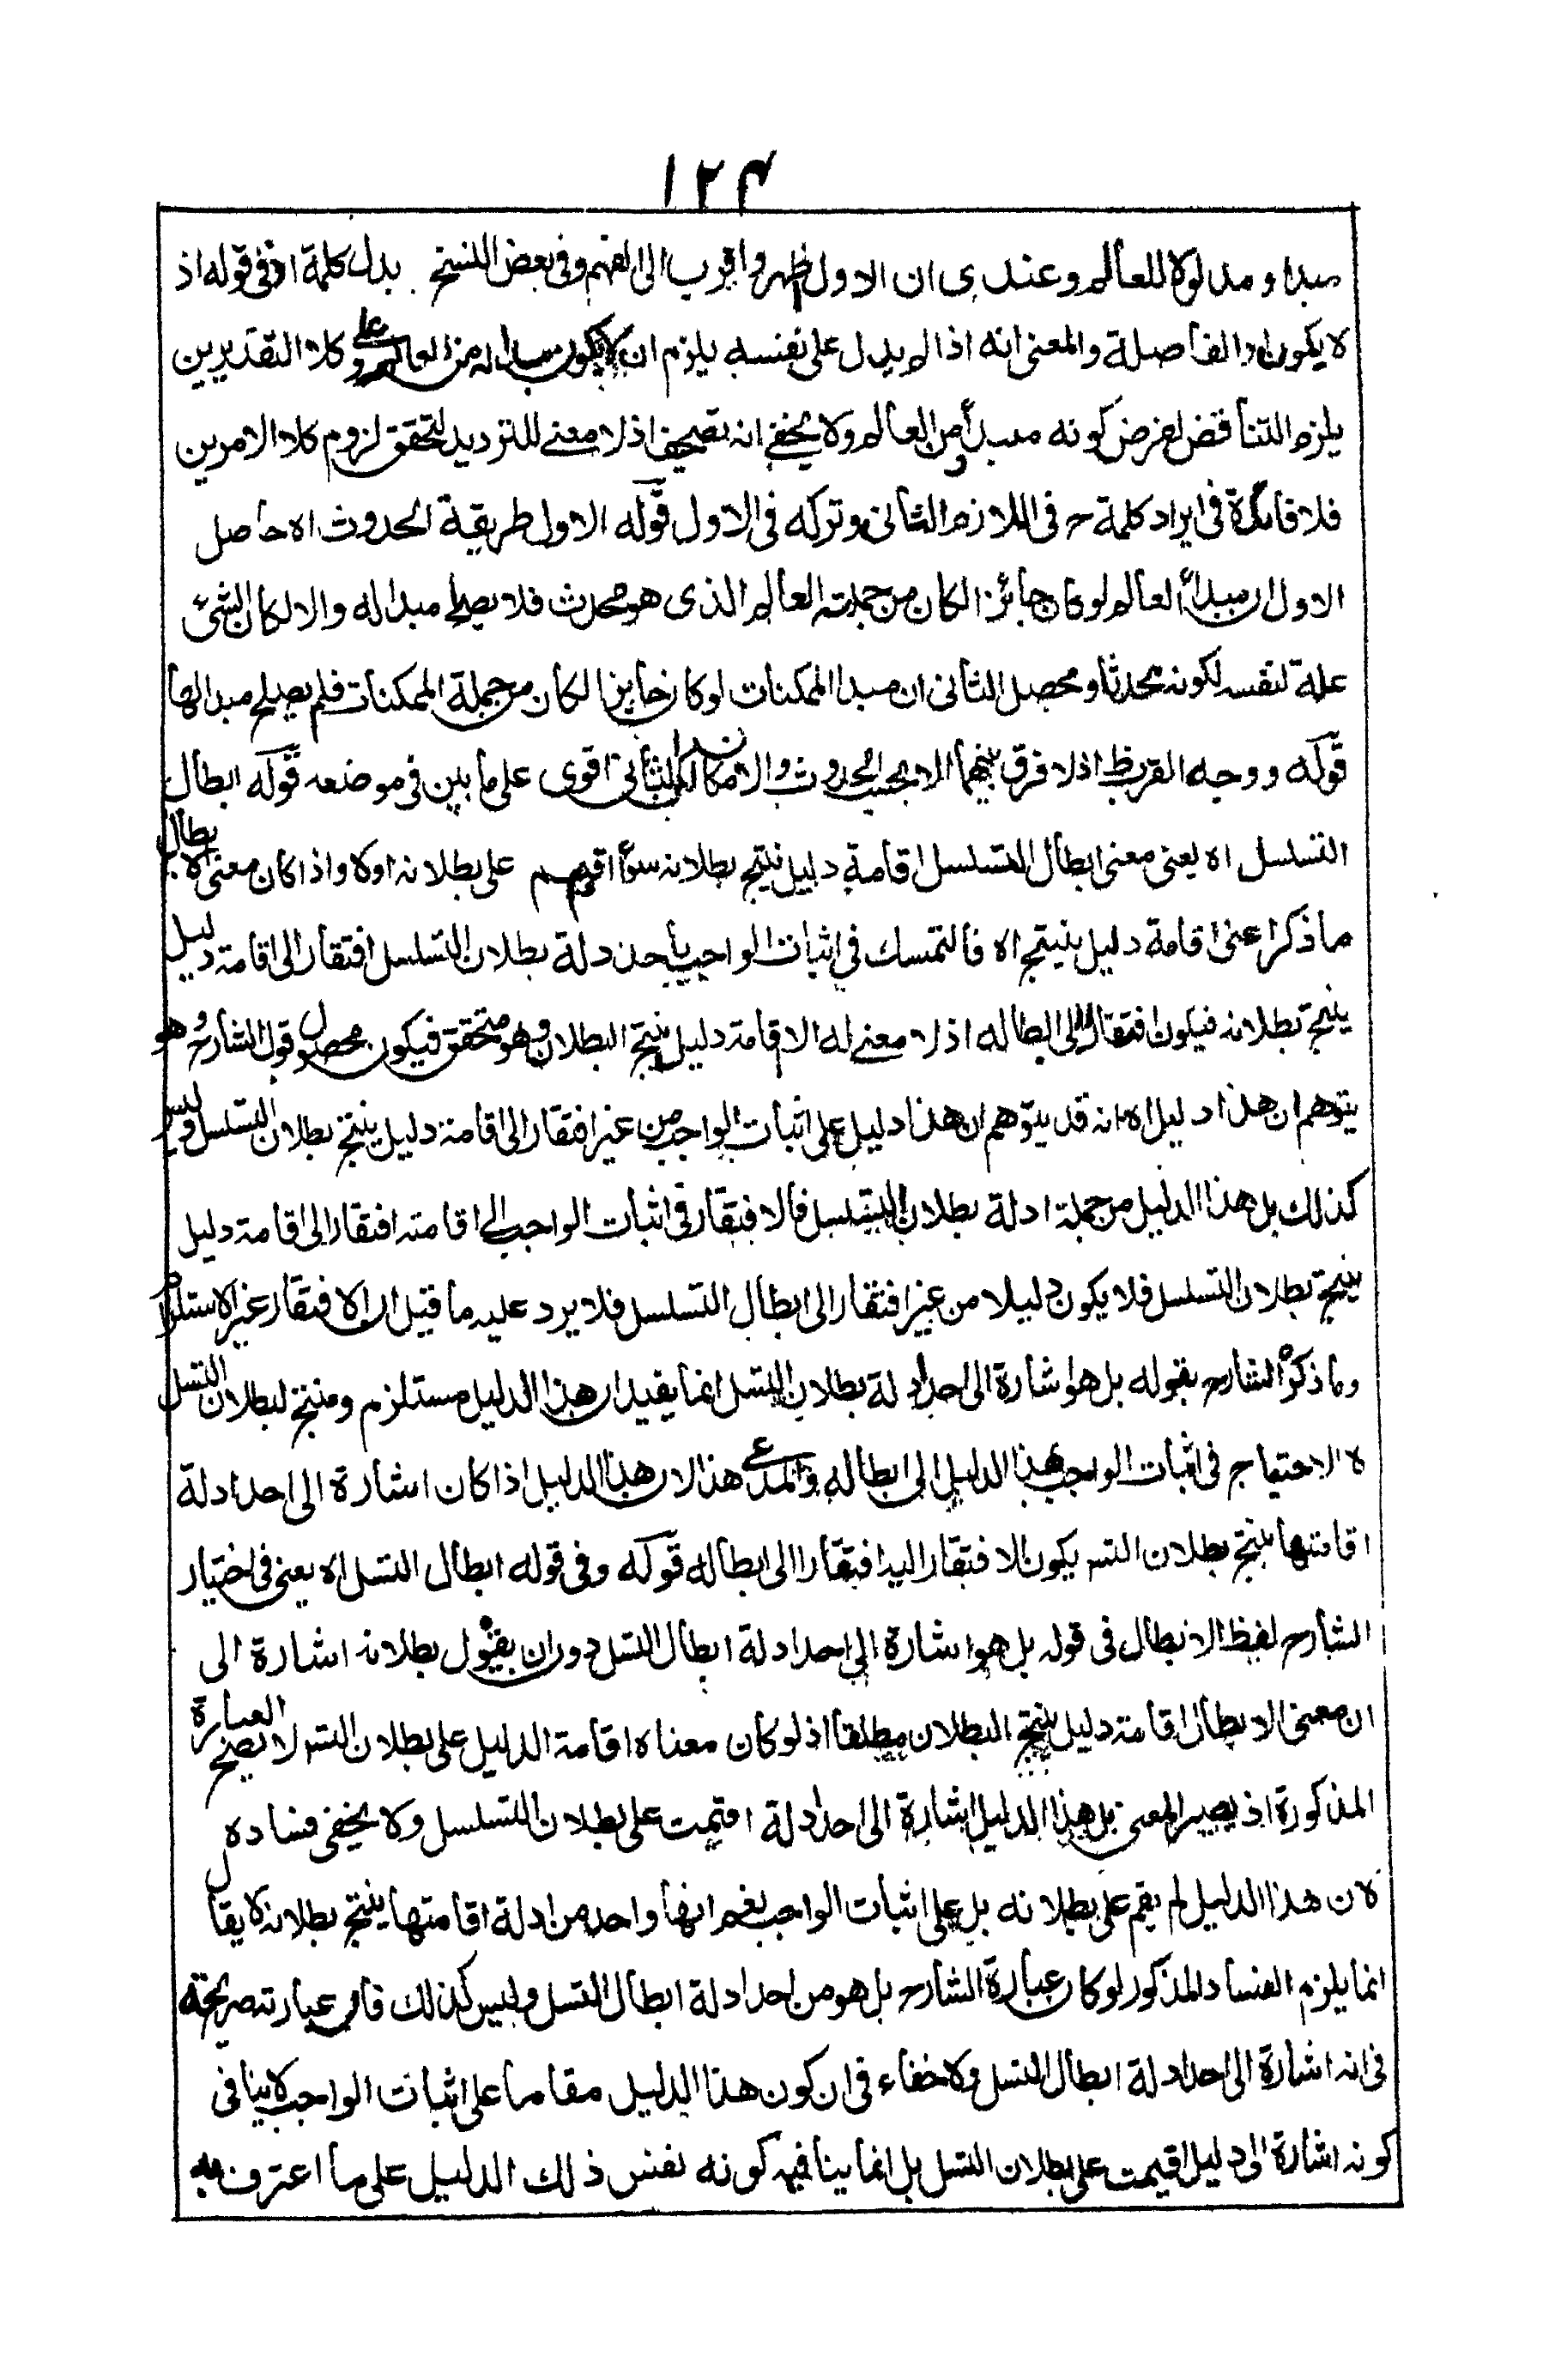 ١٢٤
مبدا ومدلولا للعالم وعندى ان الاول اظهر واقرب الى الفهم وفى بعض النسخ بدل كلمة اذ فى قوله اذ
لا يكون او الفاصلة والمعنى انه اذا لم يدل على نفسه يلزم ان لا يكون مبدا له من العالم وعلى كلا التقديرين
يلزم التناقض لفرض كونه مبدأ من العالم ولا يخفى انه تصحيف اذ لا معنى للترديد لتحقق لزوم كلا الامرين
فلا فائدة فى ايراد كلمة ح فى اللازم الثانى وتركه فى الاول قوله الاول طريقة الحدوث اه حاصل
الاول ان مبدأ العالم لو كان جائزا لكان من جملة العالم الذى هو محدث فلا يصلح مبدا له والا لكان الشئ
علة لنفسه لكونه محدثا ومحصل الثانى ان مبدا الممكنات لو كان جايزا لكان من جملة الممكنات فلم يصلح مبدا لها
قوله ووجه القرب ظ اذ لا فرق بينهما الا بحسب الحدوث والامكان لكن الثانى اقوى على ما بين فى موضعه قوله ابطال
التسلسل اه يعنى معنى ابطال التسلسل اقامة دليل ينتج بطلانه سواء اقيم على بطلانه اولا واذا كان معنى الابطال
ما ذكر اعنى اقامة دليل ينتج اه فالتمسك فى اثبات الواجب باحد ادلة بطلان التسلسل افتقار الى اقامة دليل
ينتج بطلانه فيكون افتقارا الى ابطاله اذ لا معنى له الا اقامة دليل ينتج البطلان وهو متحقق فيكون محصول قول الشارح وهو
يتوهم ان هذا دليل اه انه قد يتوهم ان هذا دليل على اثبات الواجب من غير افتقار الى اقامة دليل ينتج بطلان التسلسل وليس
كذلك بل هذا الدليل من جملة ادلة بطلان التسلسل فالافتقار فى اثبات الواجب الى اقامته افتقار الى اقامة دليل
ينتج بطلان التسلسل فلا يكون دليلا من غير افتقار الى ابطال التسلسل فلا يرد عليه ما قيل ان الافتقار غير الاستلزام
وما ذكره الشارح بقوله بل هو اشارة الى احد ادلة بطلان التسل انما يفيد ان هذا الدليل مستلزم ومنتج لبطلان التسل
لا الاحتياج فى اثبات الواجب بهذا الدليل الى ابطاله والمدعى هذا لان هذا الدليل اذا كان اشارة الى احد ادلة
اقامتها ينتج بطلان التسـ يكون الافتقار اليه افتقارا الى ابطاله قوله وفى قوله ابطال التسل اه يعنى فى اختيار
الشارح لفظ الابطال فى قوله بل هو اشارة الى احد ادلة ابطال التسل دون ان يقول بطلانه اشارة الى
ان معنى الابطال اقامة دليل ينتج البطلان مطلقا اذ لو كان معناه اقامة الدليل على بطلان التسـ لا يصح العبارة
المذكورة اذ يصير المعنى بل هذا الدليل اشارة الى احد ادلة اقيمت على بطلان التسلسل ولا يخفى فساده
لان هذا الدليل لم يقم على بطلانه بل على اثبات الواجب نعم انها واحد من ادلة اقامتها ينتج بطلانه لا يقال
انما يلزم الفساد المذكور لو كان عبارة الشارح بل هو من احد ادلة ابطال التسل وليس كذلك فان عبارته صريحة
فى انه اشارة الى احد ادلة ابطال التسل ولا خفاء فى ان كون هذا الدليل مقاما على اثبات الواجب لا ينافى
كونه اشارة الى دليل اقيمت على بطلان التسل بل انما ينافيه كونه نفس ذلك الدليل على ما اعترف به